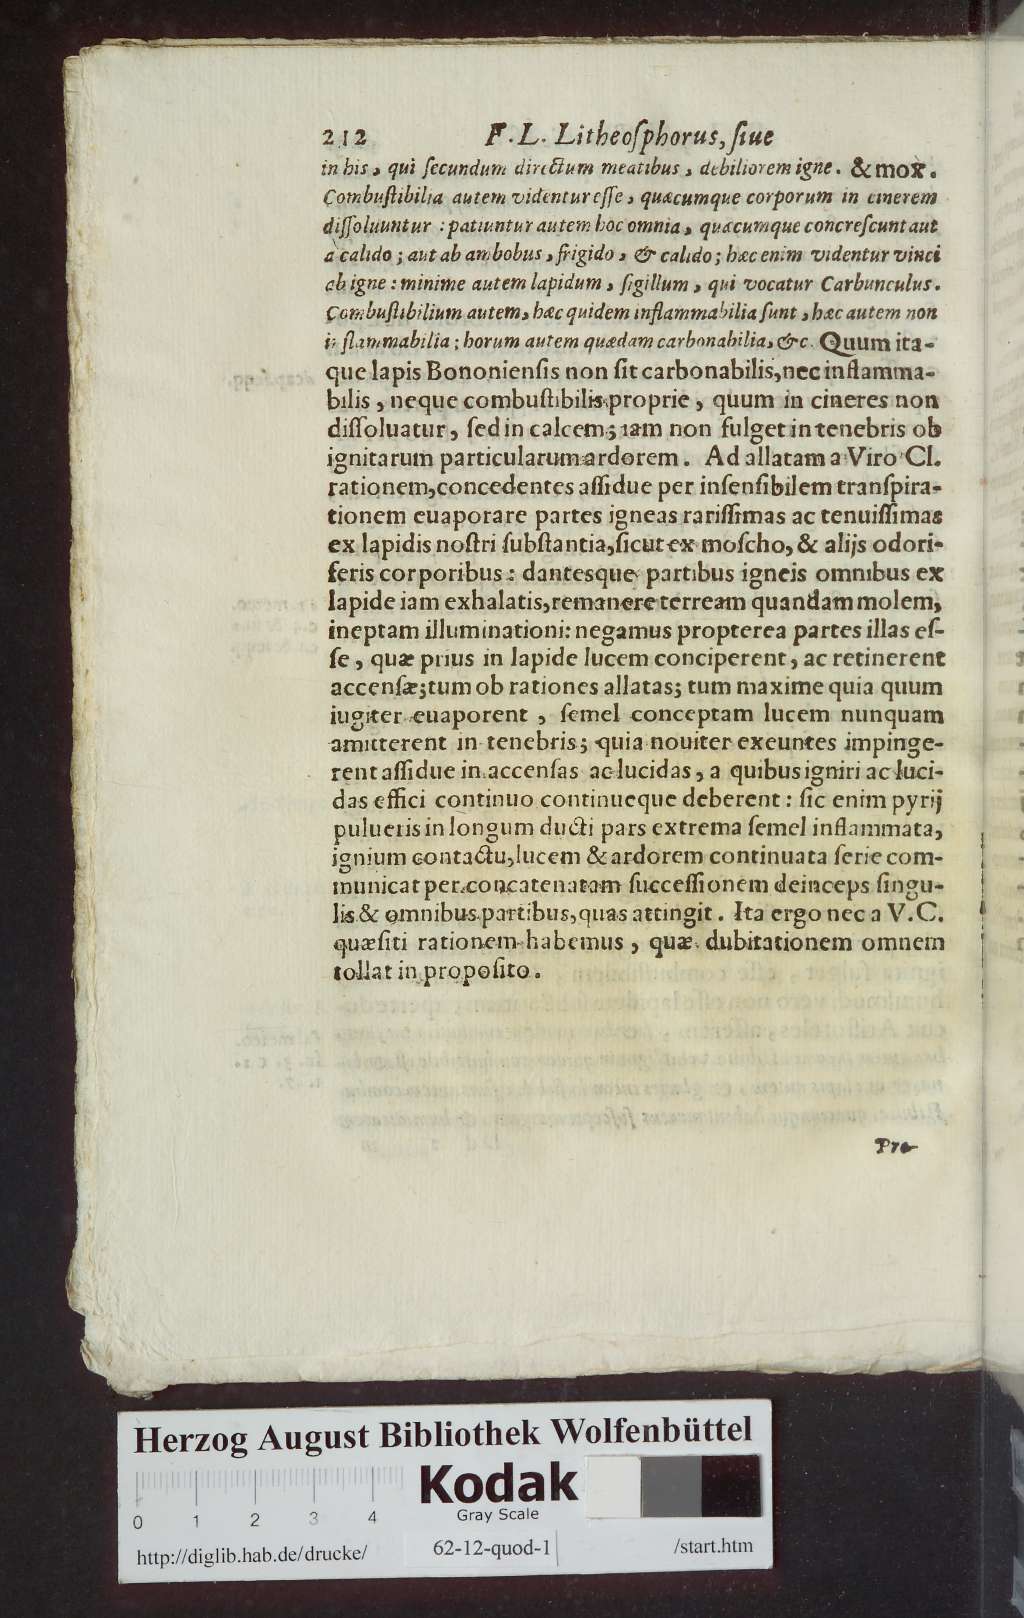 212 F. L. Litheoſphorus, ſiue
in his, qui ſecundum directum meatibus, debiliorem igne. & mox.
Combuſtibilia autem videntur eſſe, quæcumque corporum in cinerem
diſſoluuntur : patiuntur autem hoc omnia, quæcumque concreſcunt aut
à calido ; aut ab ambobus, frigido, & calido ; hæc enim videntur vinci
ab igne : minime autem lapidum, ſigillum, qui vocatur Carbunculus.
Combuſtibilium autem, hæc quidem inflammabilia ſunt, hæc autem non
inflammabilia ; horum autem quædam carbonabilia, &c. Quum ita-
que lapis Bononienſis non ſit carbonabilis, nec inflamma-
bilis, neque combuſtibilis proprie, quum in cineres non
diſſoluatur, ſed in calcem ; iam non fulget in tenebris ob
ignitarum particularum ardorem. Ad allatam a Viro Cl.
rationem, concedentes aſſidue per inſenſibilem tranſpira-
tionem euaporare partes igneas rariſſimas ac tenuiſſimas
ex lapidis noſtri ſubſtantia, ſicut ex moſcho, & alijs odori-
feris corporibus : dantesque partibus igneis omnibus ex
lapide iam exhalatis, remanere terream quandam molem,
ineptam illuminationi : negamus propterea partes illas eſ-
ſe, quæ prius in lapide lucem conciperent, ac retinerent
accenſæ ; tum ob rationes allatas ; tum maxime quia quum
iugiter euaporent, ſemel conceptam lucem nunquam
amitterent in tenebris ; quia nouiter exeuntes impinge-
rent aſſidue in accenſas ac lucidas, a quibus igniri ac luci-
das effici continuo continueque deberent : ſic enim pyrij
pulueris in longum ducti pars extrema ſemel inflammata,
ignium contactu, lucem & ardorem continuata ſerie com-
municat per concatenatam ſucceſſionem deinceps ſingu-
lis & omnibus partibus, quas attingit. Ita ergo nec a V.C.
quæſiti rationem habemus, quæ dubitationem omnem
tollat in propoſito.
Pro-
Herzog August Bibliothek Wolfenbüttel
Kodak
Gray Scale
0 1 2 3 4
http://diglib.hab.de/drucke/ 62-12-quod-1 /start.htm